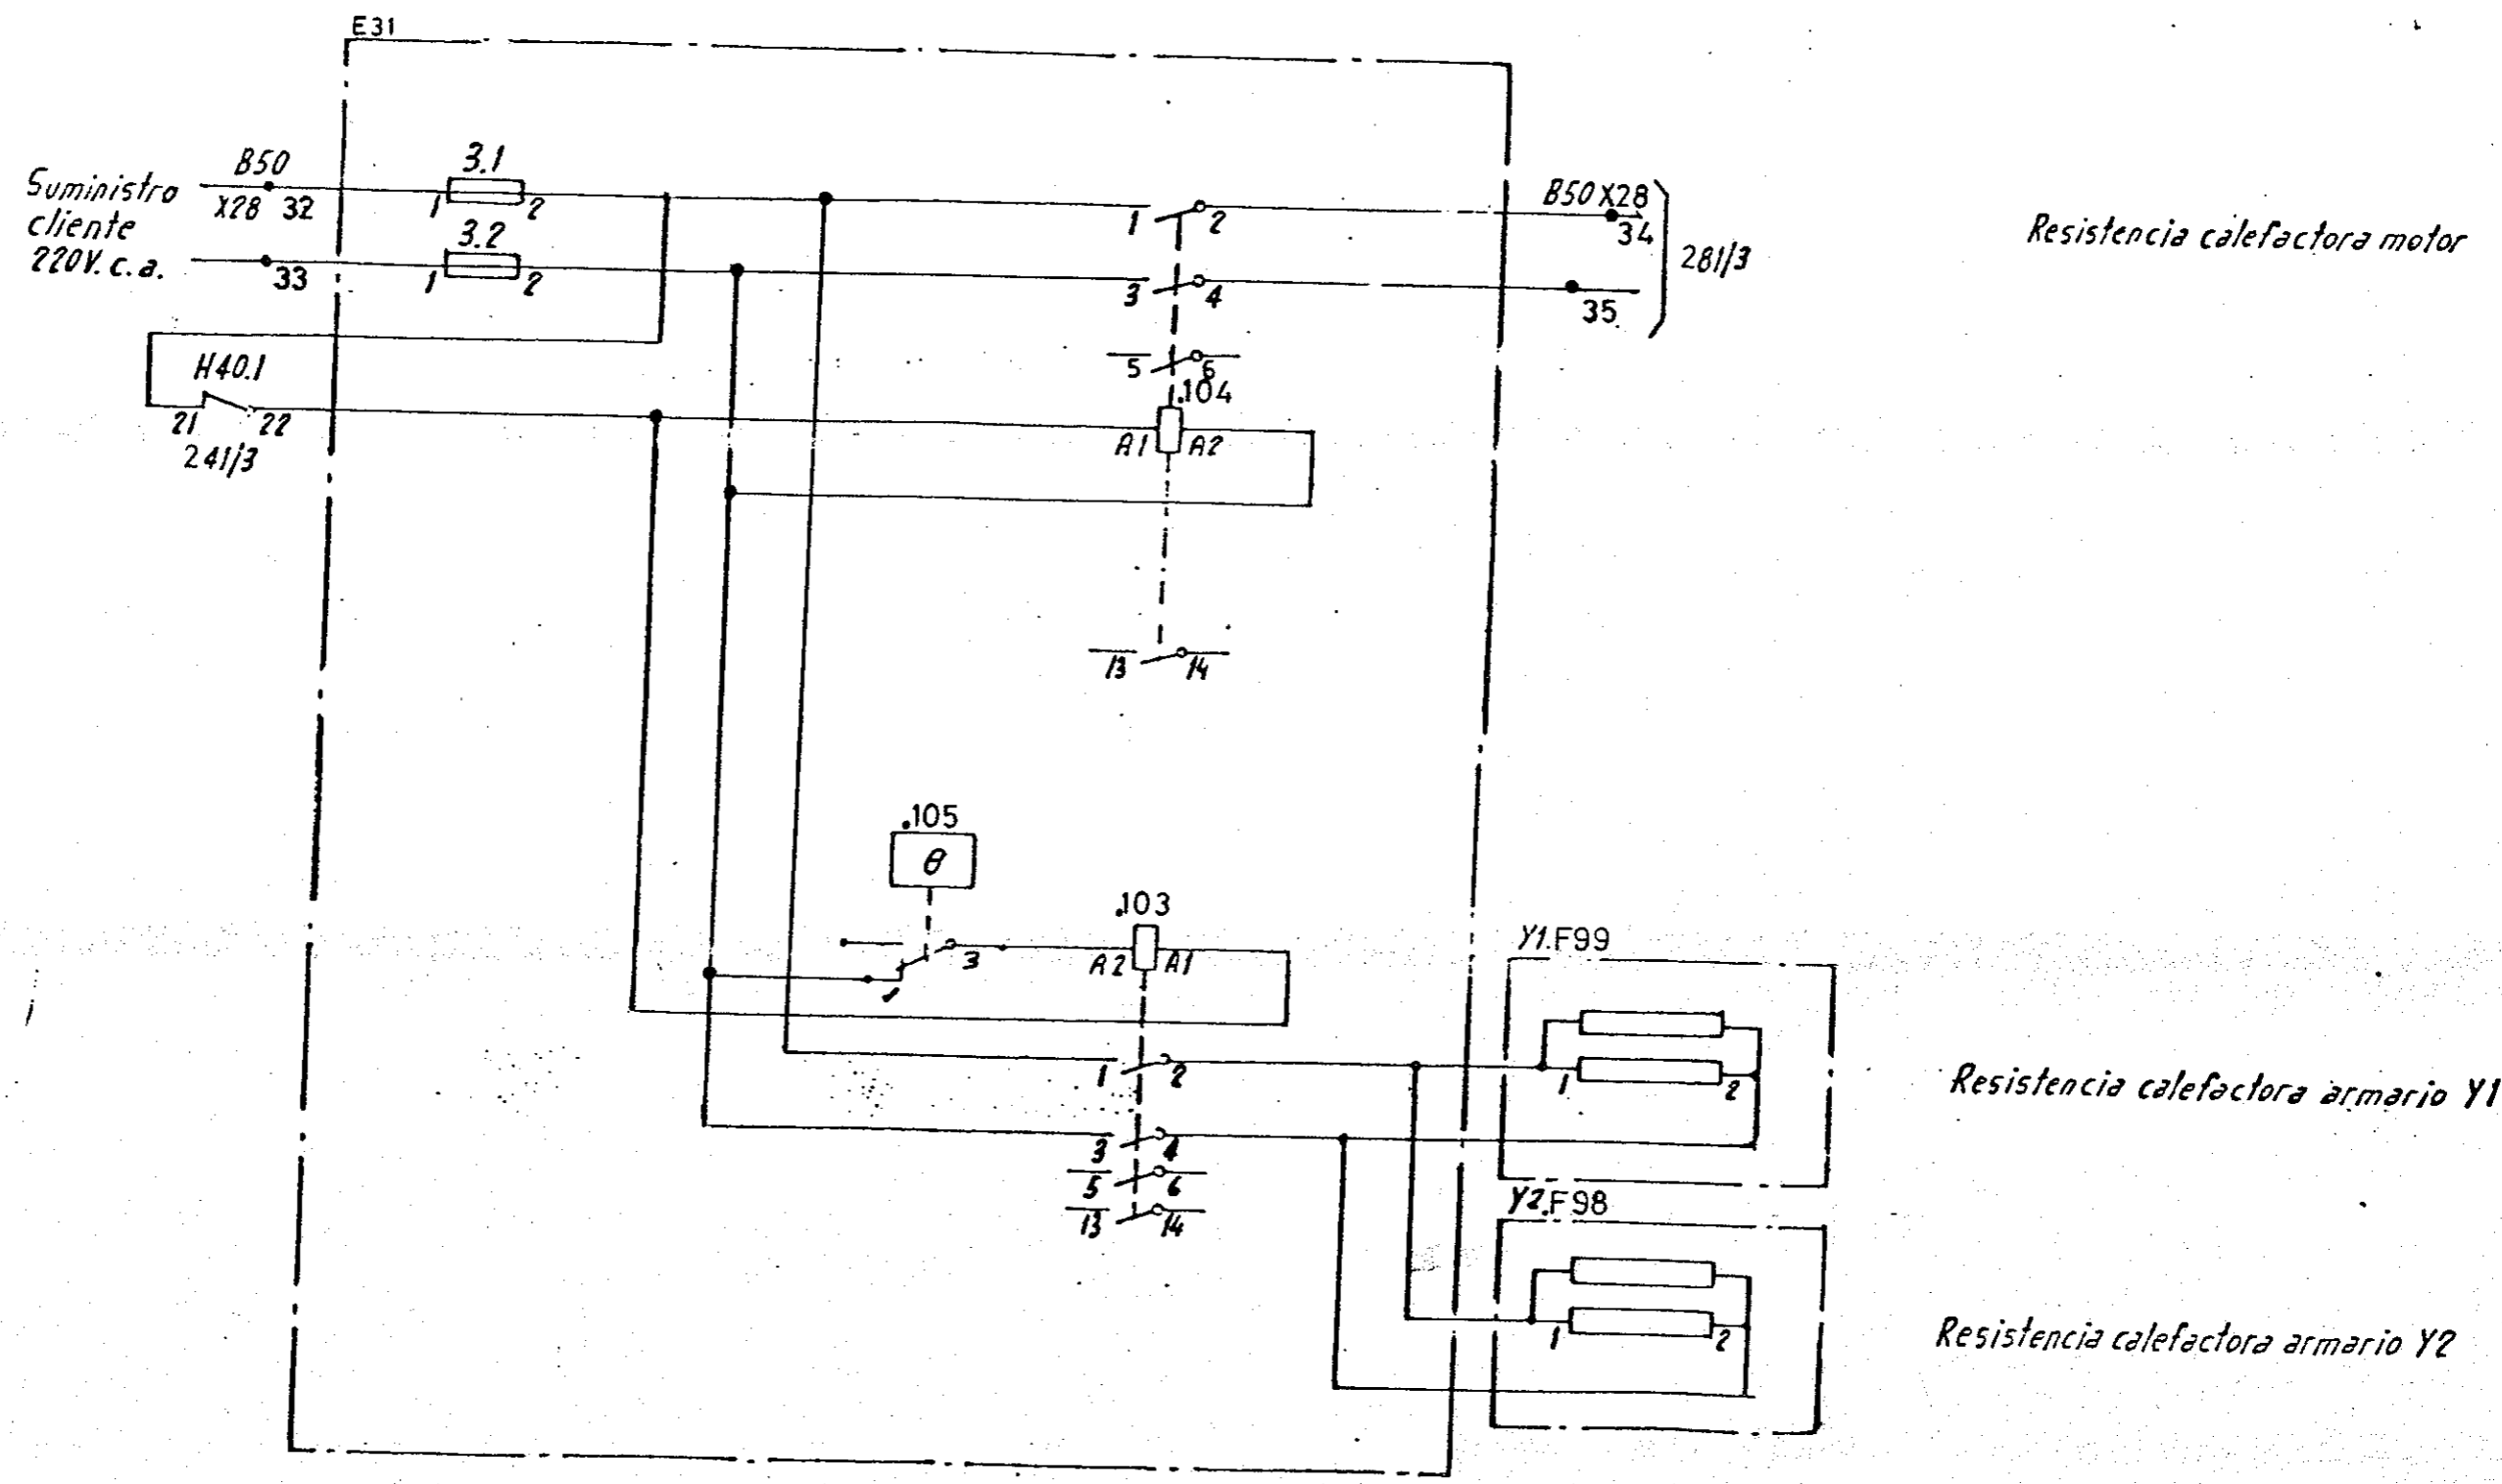 E31
Suministro
cliente
220V. c. a.
B50
X28 32
33
3.1
1 2
3.2
1 2
1 2
3 4
5 6
.104
A1 A2
13 14
B50 X28
34
35
281/3
Resistencia calefactora motor
H40.1
21 22
241/3
.105
θ
1 3
.103
A2 A1
1 2
3 4
5 6
13 14
Y1.F99
1 2
Resistencia calefactora armario Y1
Y2.F98
1 2
Resistencia calefactora armario Y2